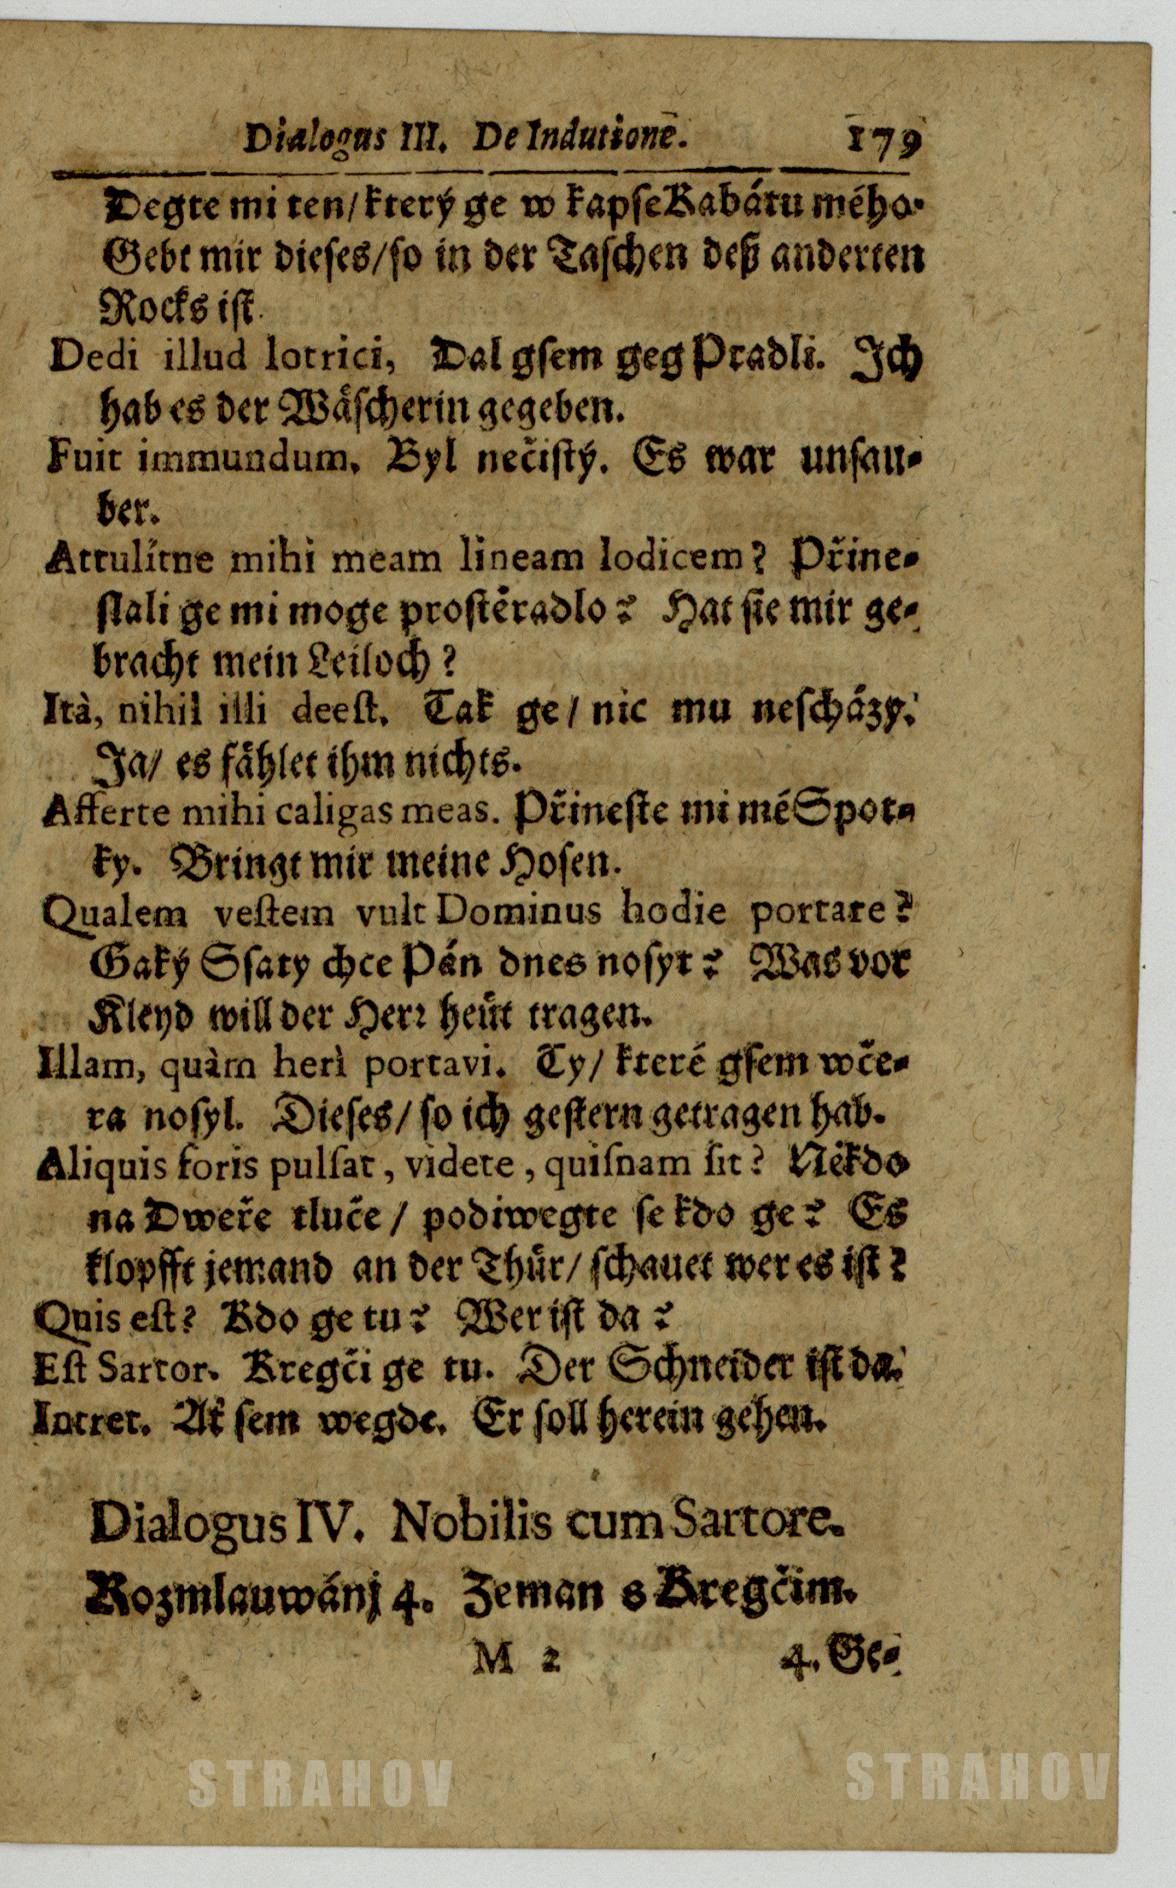 Dialogus III. De Indutione. 179
Degte mi ten/ který ge w kapse Kabátu mého.
Gebt mir dieses/ so in der Taschen deß anderten
Rocks ist.
Dedi illud lotrici, Dal gsem geg Pradli. Ich
hab es der Wäscherin gegeben.
Fuit immundum. Byl nečistý. Es war unsau-
ber.
Attulitne mihi meam lineam lodicem? Přine-
slali ge mi moge prostěradlo? Hat sie mir ge-
bracht mein Leiloch?
Ità, nihil illi deest. Tak ge/ nic mu neschází.
Ja/ es fählet ihm nichts.
Afferte mihi caligas meas. Přineste mi mé Spot-
ky. Bringt mir meine Hosen.
Qualem vestem vult Dominus hodie portare?
Gaký Ssaty chce Pán dnes nosyt? Was vor
Kleyd will der Herr heüt tragen.
Illam, quàm herì portavi. Ty/ které gsem wče-
ra nosyl. Dieses/ so ich gestern getragen hab.
Aliquis foris pulsat, videte, quisnam sit? Někdo
na Dweře tluče/ podiwegte se kdo ge? Es
klopfft jemand an der Thür/ schauet wer es ist?
Quis est? Kdo ge tu? Wer ist da?
Est Sartor. Kregči ge tu. Der Schneider ist da.
Intret. Ať sem wegde. Er soll herein gehen.
Dialogus IV. Nobilis cum Sartore.
Rozmlauwánj 4. Zeman s Kregčim.
M 2 4. Ge-
STRAHOV STRAHOV